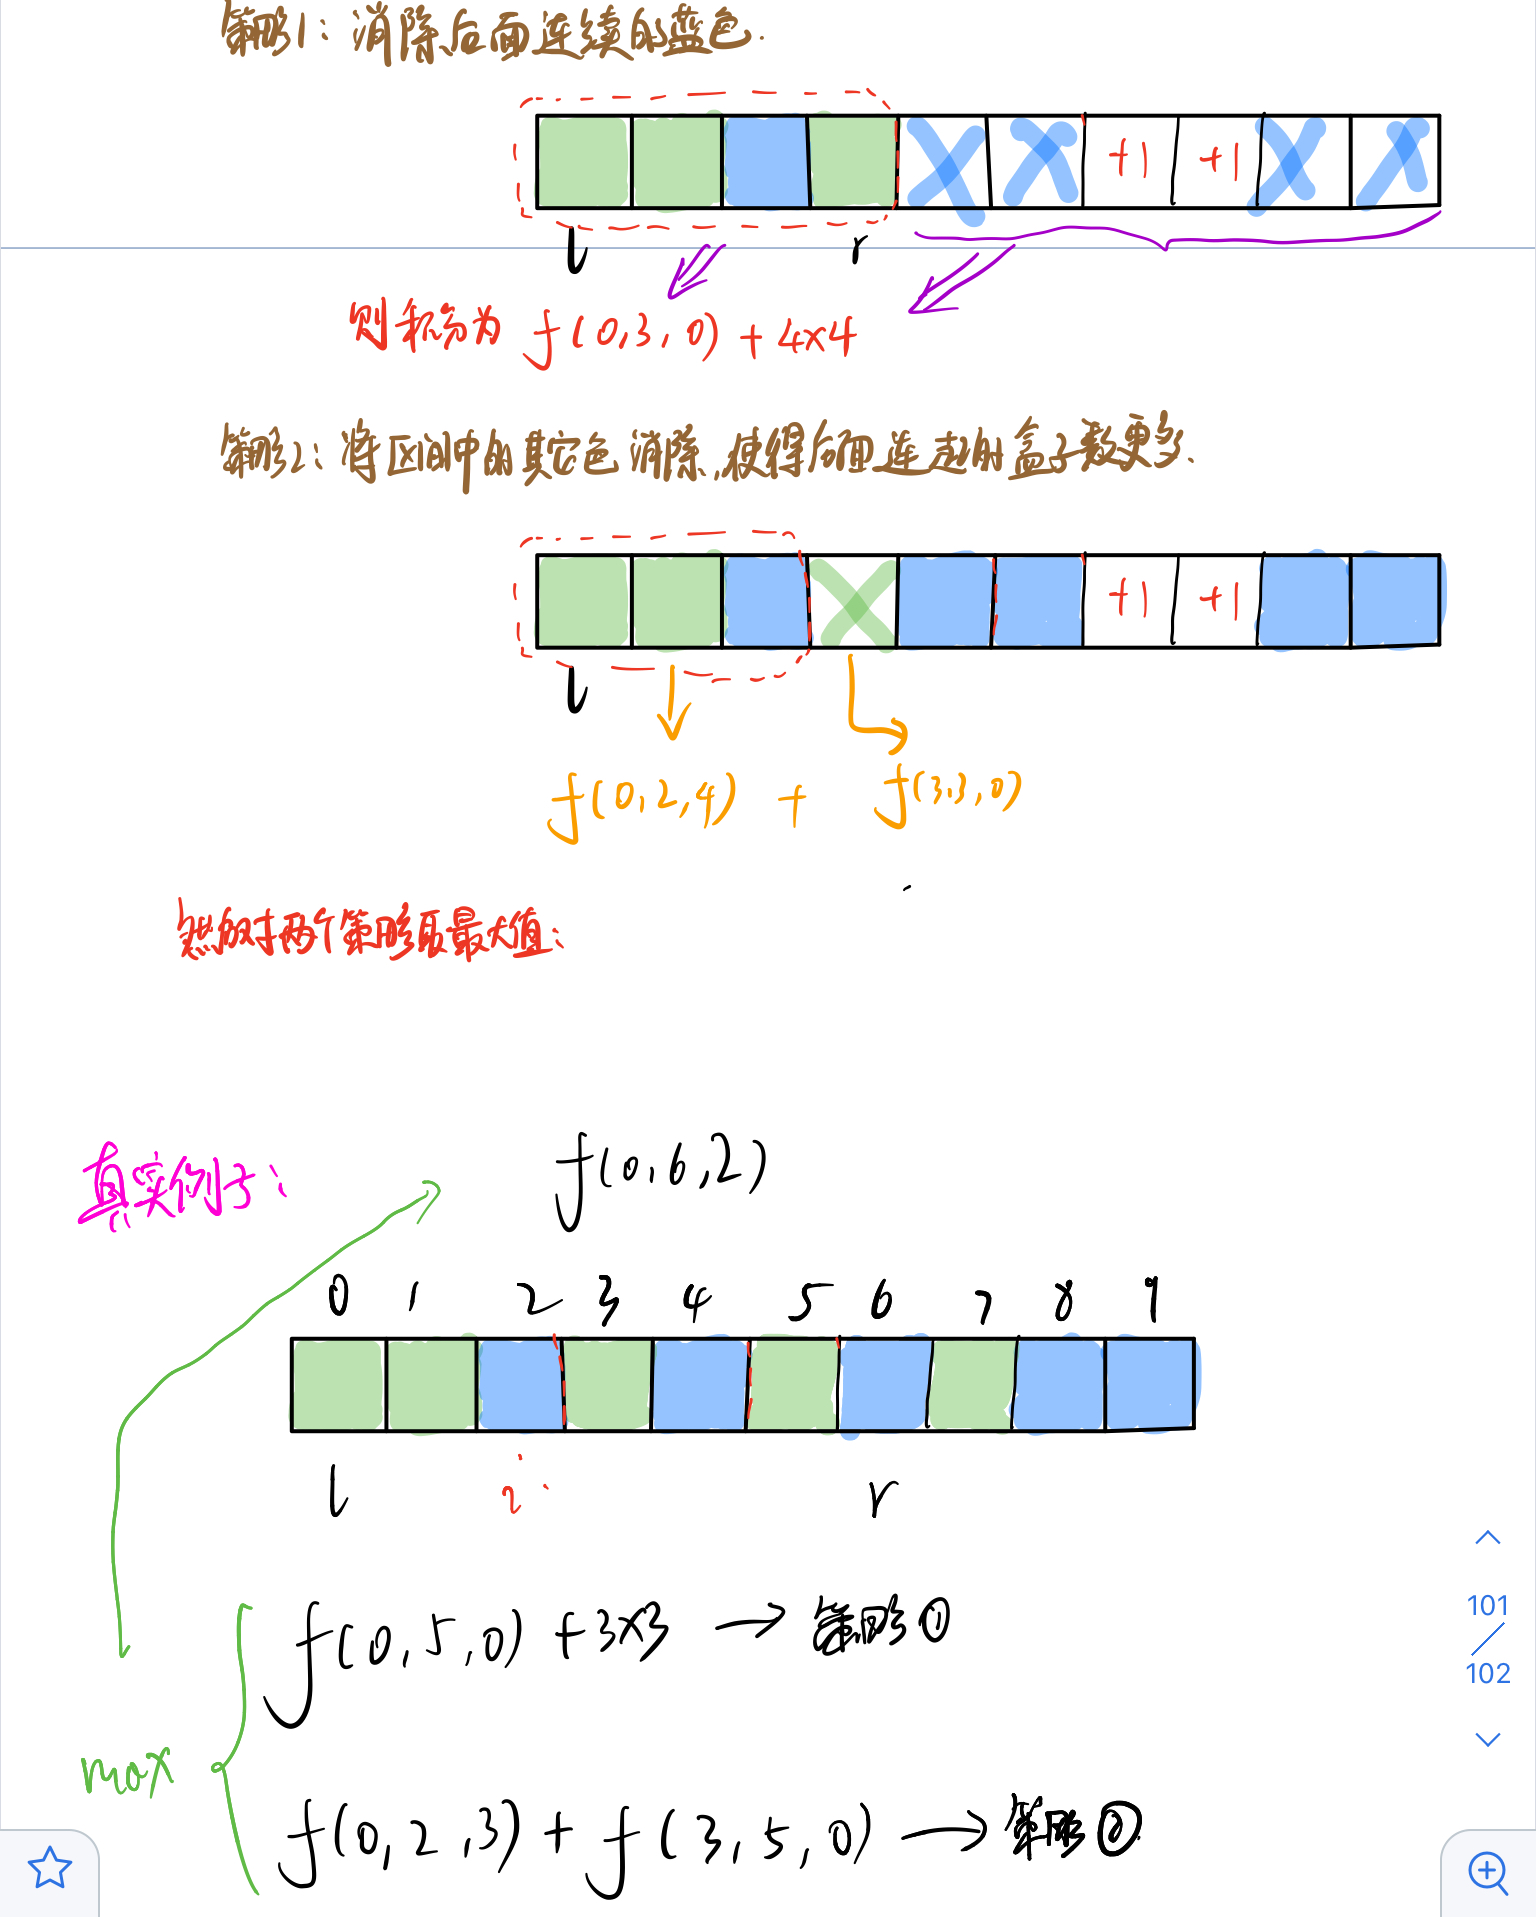 策略1: 消除后面连续的蓝色.
+1 +1
l r
则积分为 f(0,3,0) + 4x4
策略2: 将区间中的其它色消除,使得后面连起来的盒子数更多.
+1 +1
l
f(0,2,4) + f(3,3,0)
然后对两个策略取最大值:
真实例子:
f(0,6,2)
0 1 2 3 4 5 6 7 8 9
l i r
f(0,5,0) + 3x3 → 策略①
max
f(0,2,3) + f(3,5,0) → 策略②
101
102